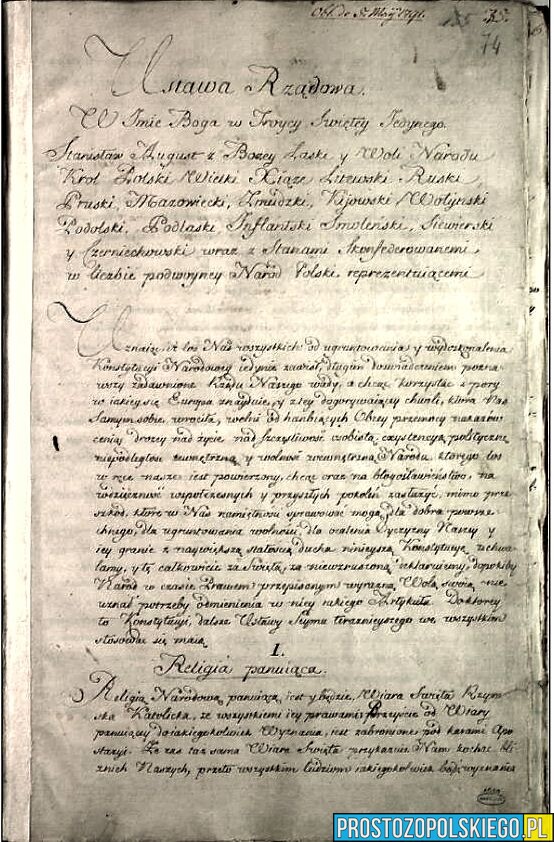 Obl. de 5. Maij 1791.
74
Ustawa Rządowa.
W Imie Boga w Troycy Swiętey Jedynego.
Stanisław August z Bozey Łaski y Woli Narodu
Krol Polski Wielki Xiąze Litewski Ruski
Pruski, Mazowiecki, Zmudzki, Kijowski Wołynski
Podolski, Podlaski Inflantski Smolenski, Siewierski
y Czerniechowski wraz z Stanami Skonfederowanemi
w liczbie podwoyney Naród Polski reprezentuiącemi
Uznaiąc, iż los Nas wszystkich od ugruntowania y wydoskonalenia
Konstytucyi Narodowey iedynie zawisł, długim doswiadczeniem pozna-
wszy zadawnione Rządu Naszego wady, a chcąc korzystać z pory
w iakiey się Europa znayduie, y z tey dogorywaiącey chwili, ktora Nas
samym sobie wrociła, wolni od hanbiących Obcey przemocy nakazów
ceniąc drozey nad życie nad szczęsliwosć osobistą, exystencyą polityczną
niepodległosć zewnętrzną y wolnosć wewnętrzną Narodu, ktorego los
w ręce nasze iest powierzony, chcąc oraz na błogosławieństwo, na
wdzięcznosć wspołczesnych y przyszłych pokolen zasłużyć, mimo prze-
szkod, ktore w Nas namiętnosci sprawować mogą, dla dobra powsze-
chnego, dla ugruntowania wolnosci, dla ocalenia Oyczyzny Naszey y
iey granic z naywiększą stałoscią ducha ninieyszą Konstytucyę uchwa-
lamy, y tę całkowicie za swiętą, za niewzruszoną deklaruiemy, dopokiby
Narod w czasie Prawem przepisanym wyrazną Wolą swoią nie
uznał potrzeby odmienienia w niey iakiego Artykułu. Do ktorey
to Konstytucyi, dalsze Ustawy Seymu teraznieyszego we wszystkim
stosować się maią
I.
Religia panuiąca.
Religią Narodową panuiącą iest y będzie Wiara Swięta Rzym-
ska Katolicka, ze wszystkiemi iey prawami. Przeyscie od Wiary
panuiącey do iakiegokolwiek Wyznania, iest zabronione pod karami Apo-
stazyi. Ze zas taż sama Wiara Swięta przykazuie Nam kochać bli-
znich Naszych, przeto wszystkim ludziom iakiegokolwiek bądź wyznania
PROSTOZPOLSKIEGO.PL